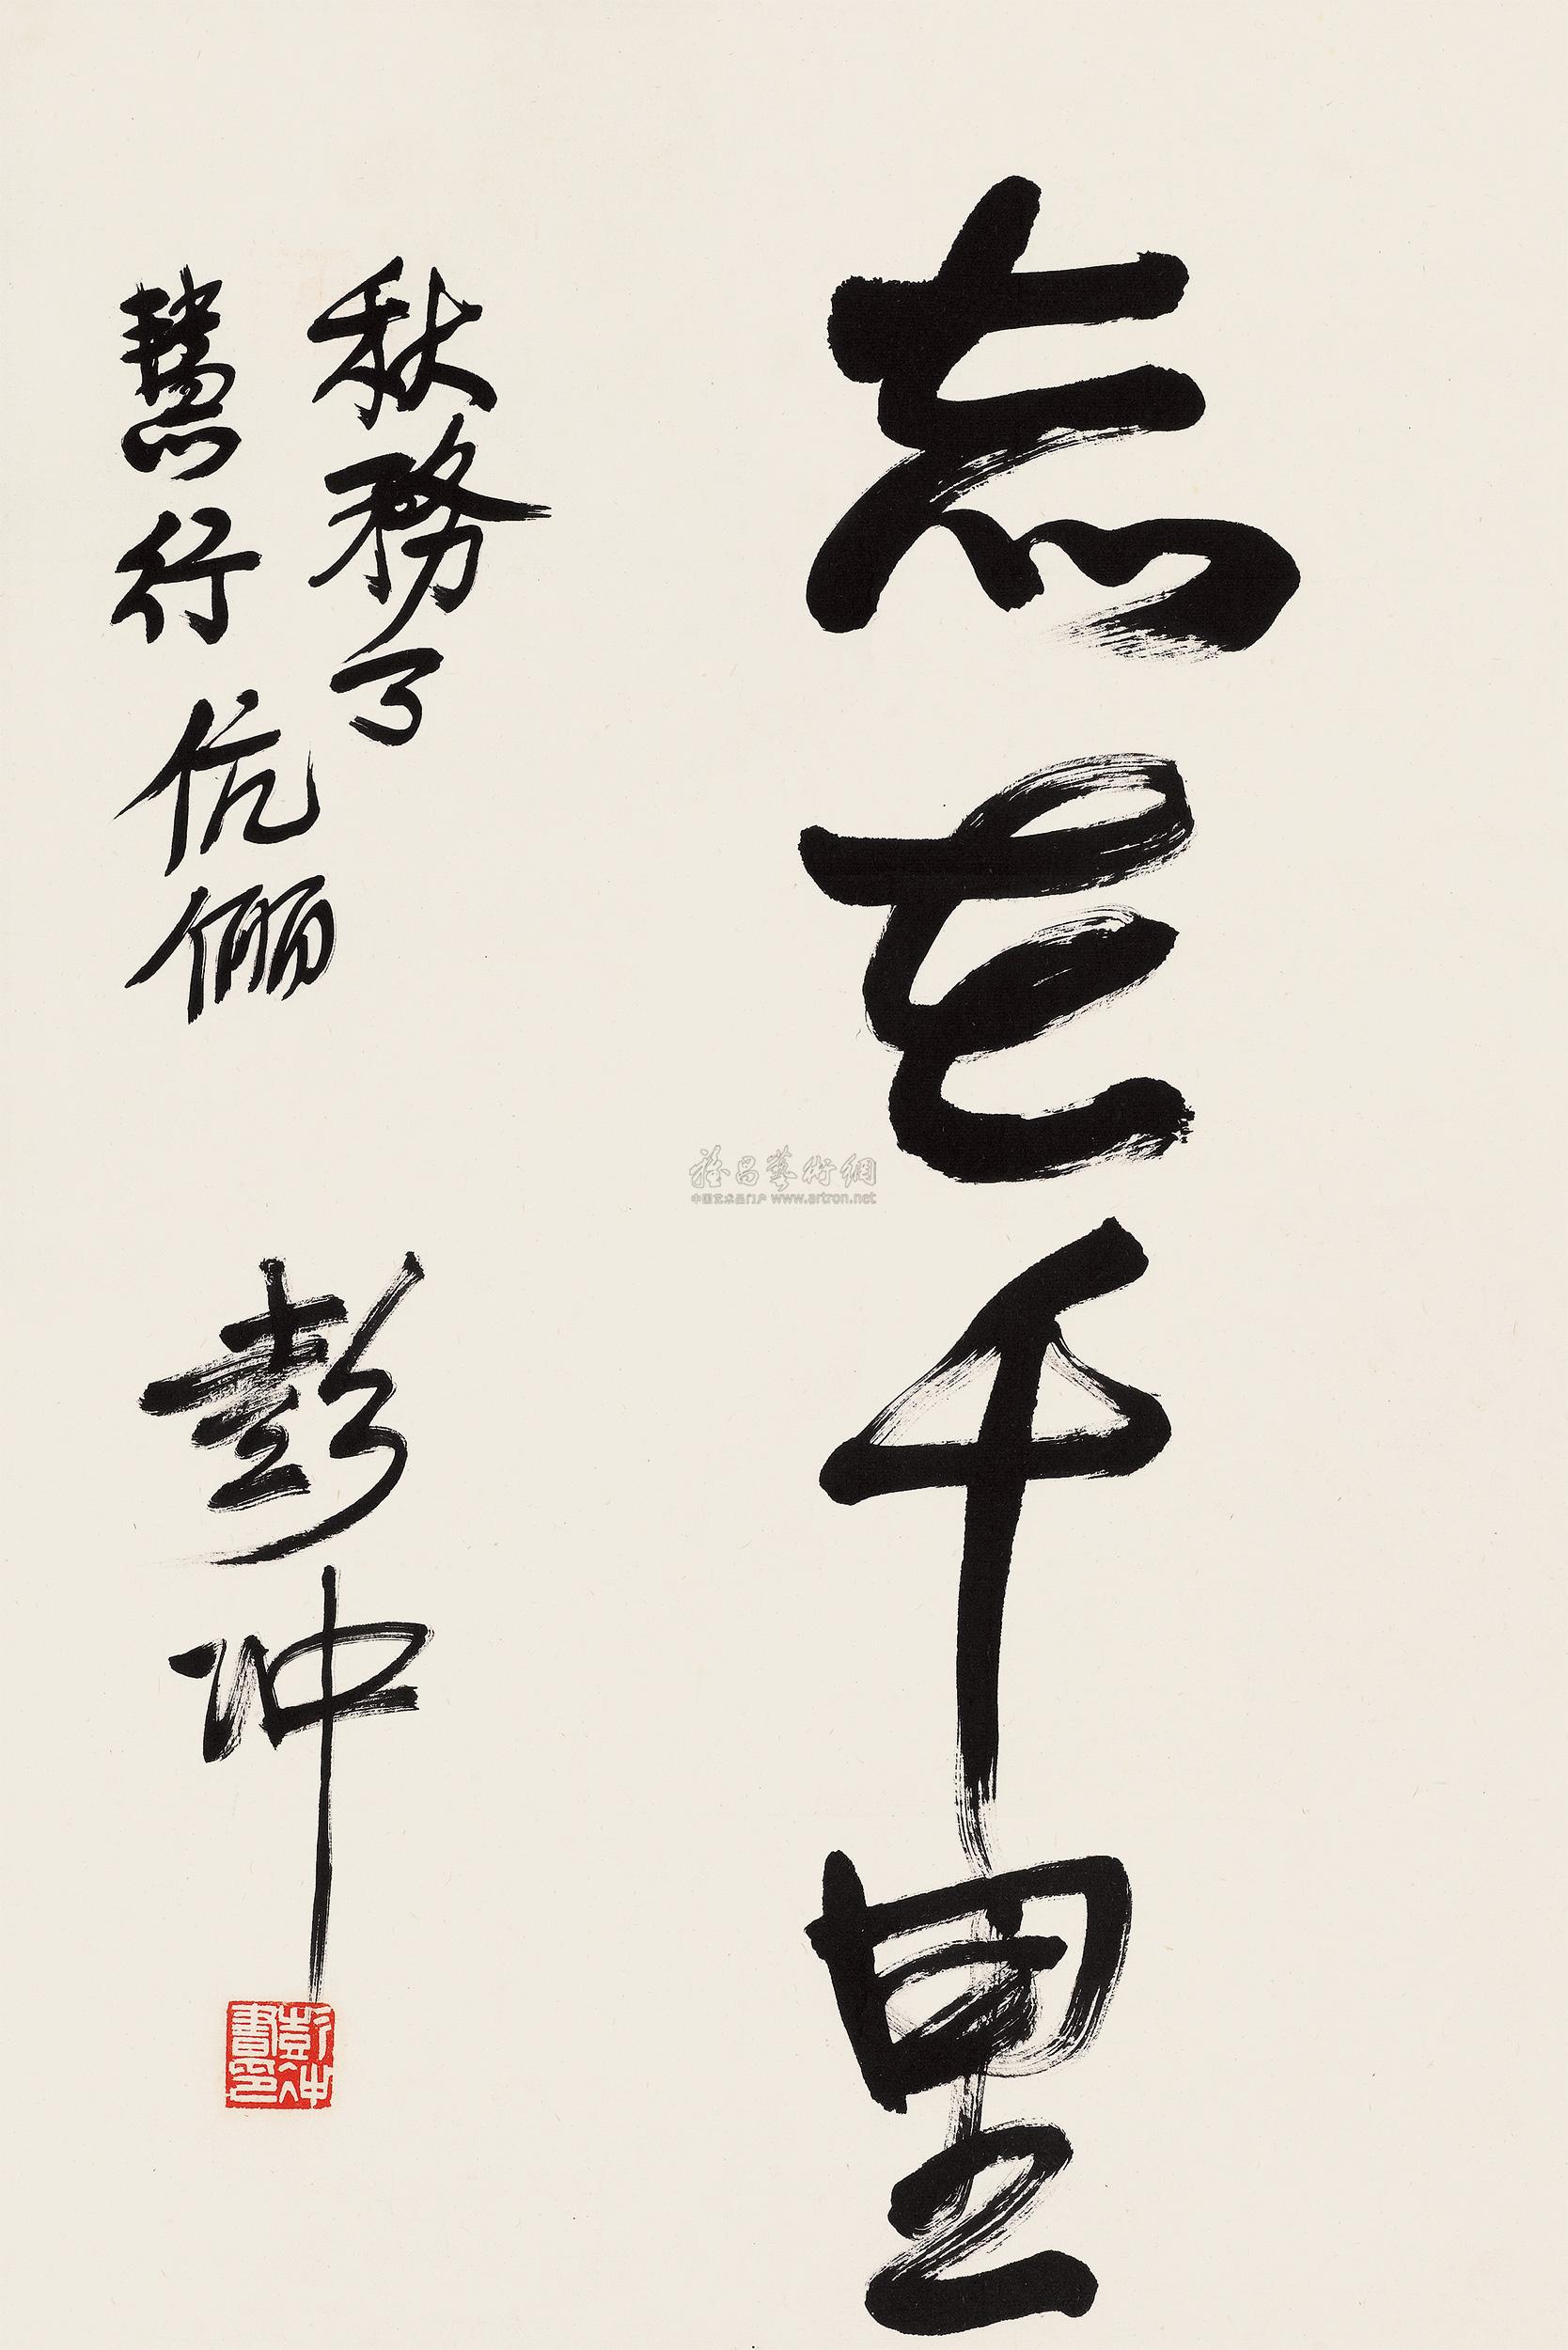 志在千里
秋務
慧行伉俪
彭冲
彭冲書印
雅昌藝術網
中国艺术品门户 www.artron.net